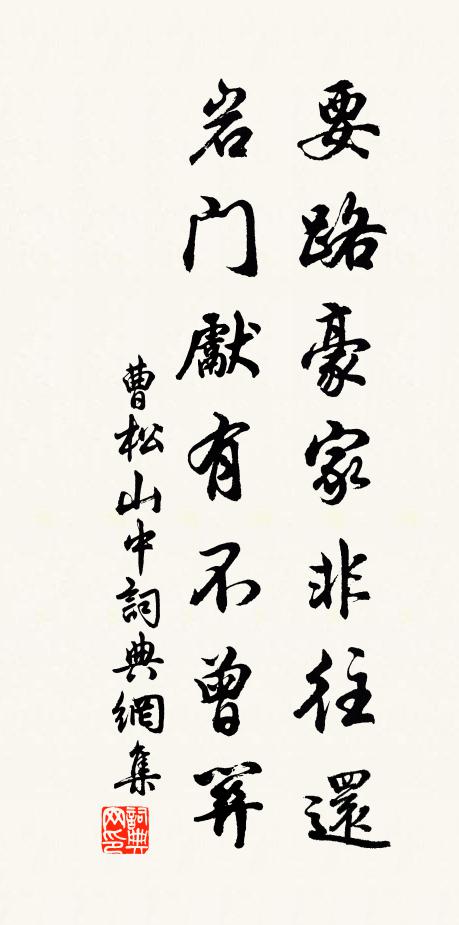 要路豪家非往還
岩门獻有不曾關
曹松山中詞典網集
詞典网印